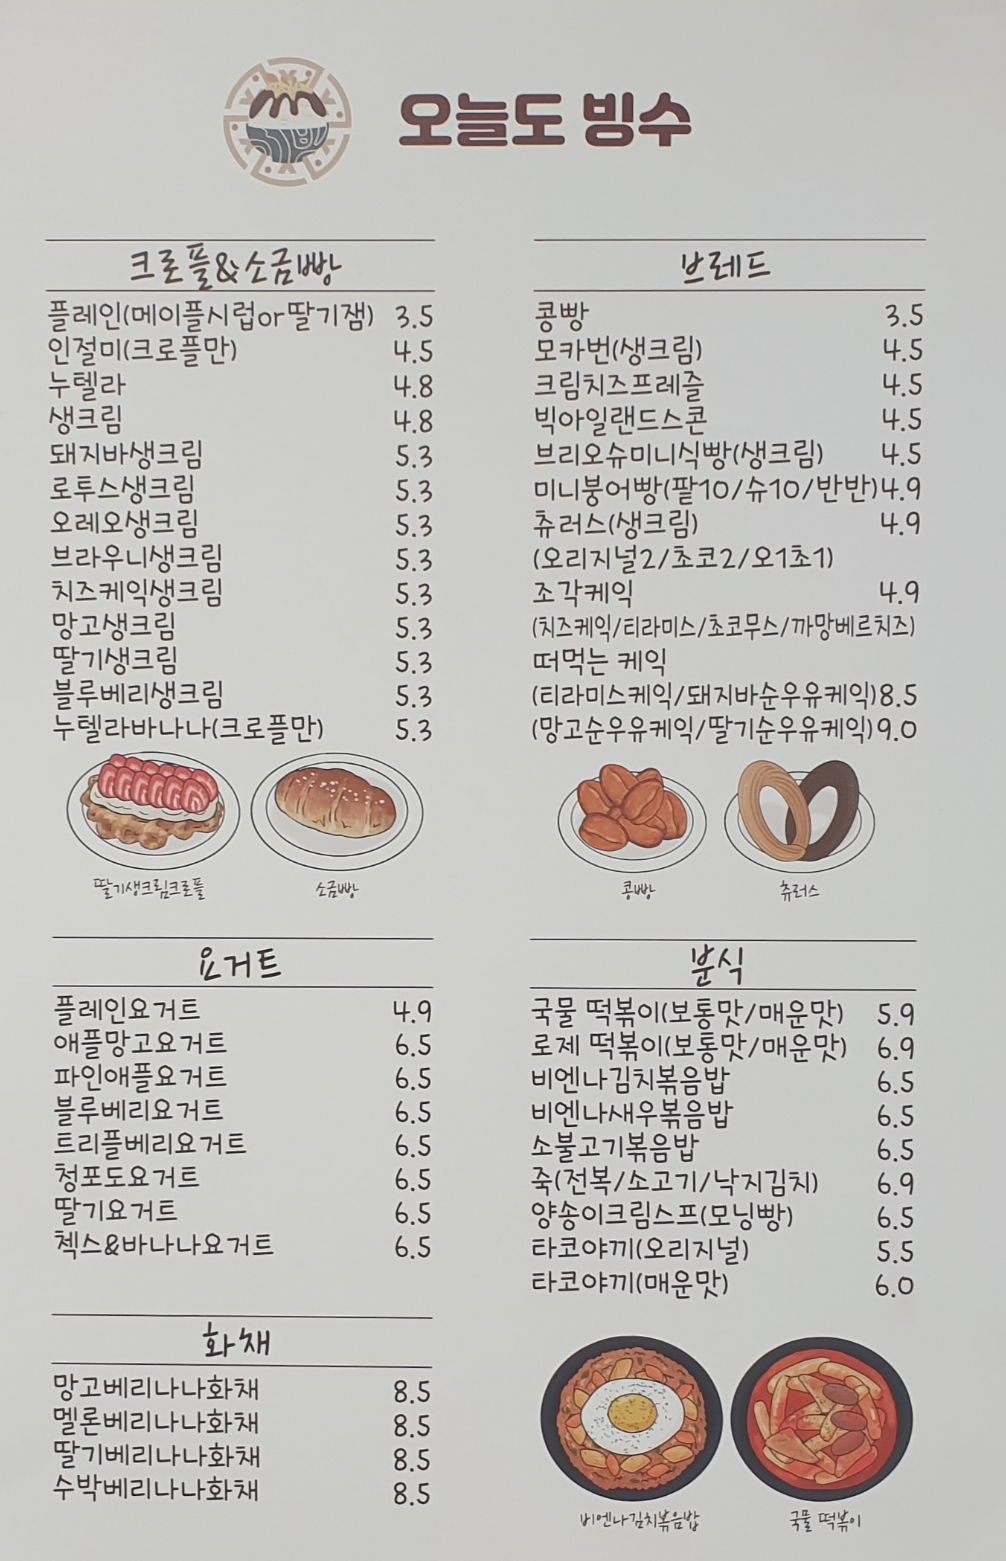 오늘도 빙수
크로플&소금빵
플레인(메이플시럽or딸기잼) 3.5
인절미(크로플만) 4.5
누텔라 4.8
생크림 4.8
돼지바생크림 5.3
로투스생크림 5.3
오레오생크림 5.3
브라우니생크림 5.3
치즈케익생크림 5.3
망고생크림 5.3
딸기생크림 5.3
블루베리생크림 5.3
누텔라바나나(크로플만) 5.3
딸기생크림크로플
소금빵
브레드
콩빵 3.5
모카번(생크림) 4.5
크림치즈프레즐 4.5
빅아일랜드스콘 4.5
브리오슈미니식빵(생크림) 4.5
미니붕어빵(팥10/슈10/반반) 4.9
츄러스(생크림) 4.9
(오리지널2/초코2/오1초1)
조각케익 4.9
(치즈케익/티라미스/초코무스/까망베르치즈)
떠먹는 케익
(티라미스케익/돼지바순우유케익) 8.5
(망고순우유케익/딸기순우유케익) 9.0
콩빵
츄러스
요거트
플레인요거트 4.9
애플망고요거트 6.5
파인애플요거트 6.5
블루베리요거트 6.5
트리플베리요거트 6.5
청포도요거트 6.5
딸기요거트 6.5
첵스&바나나요거트 6.5
화채
망고베리나나화채 8.5
멜론베리나나화채 8.5
딸기베리나나화채 8.5
수박베리나나화채 8.5
분식
국물 떡볶이(보통맛/매운맛) 5.9
로제 떡볶이(보통맛/매운맛) 6.9
비엔나김치볶음밥 6.5
비엔나새우볶음밥 6.5
소불고기볶음밥 6.5
죽(전복/소고기/낙지김치) 6.9
양송이크림스프(모닝빵) 6.5
타코야끼(오리지널) 5.5
타코야끼(매운맛) 6.0
비엔나김치볶음밥
국물 떡볶이